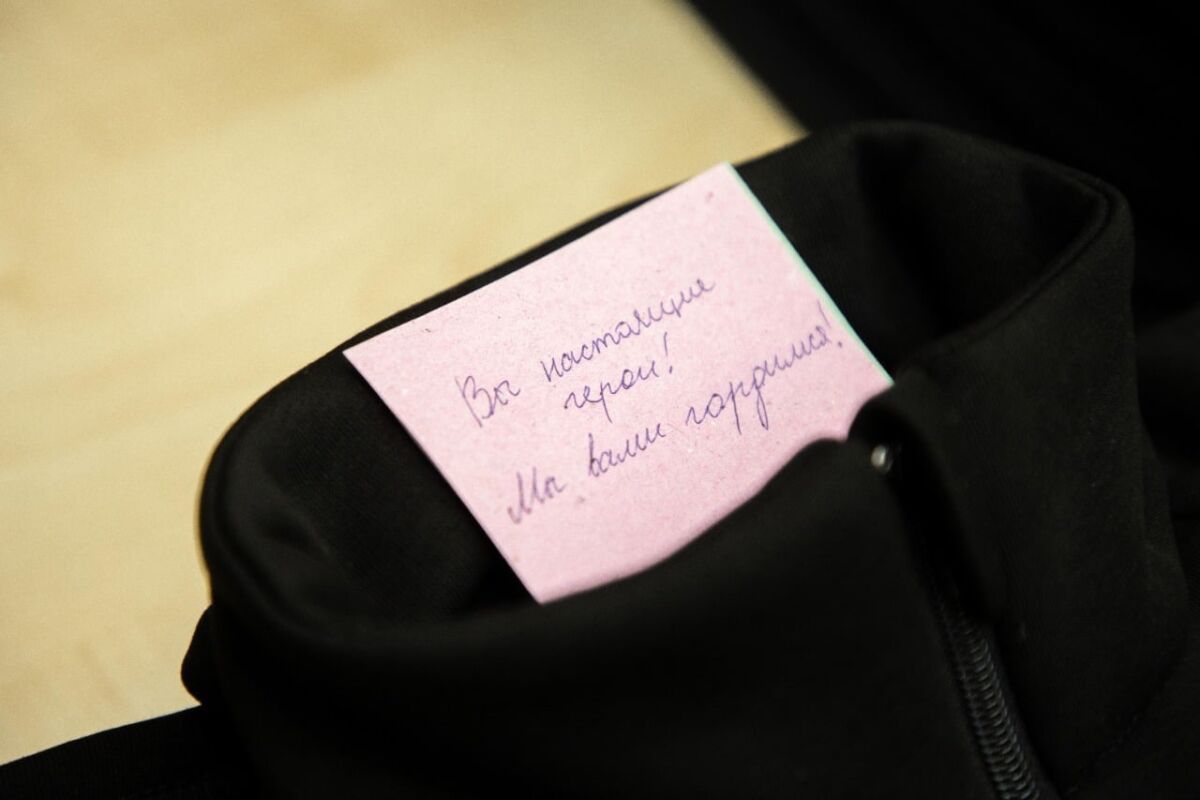 Вы настоящие
герои!
Мы вами гордимся!